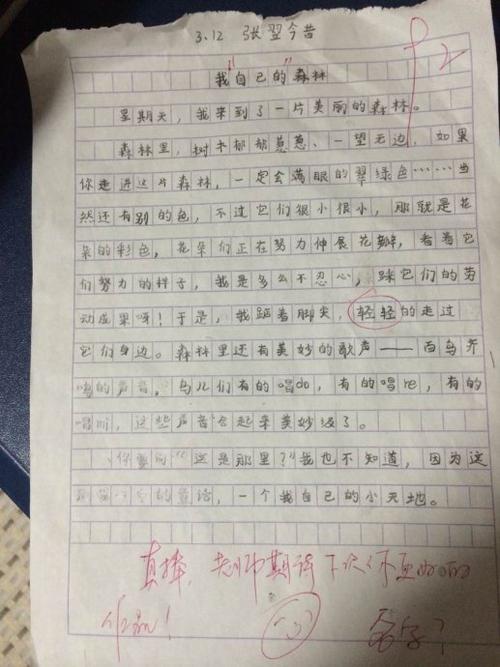 3.12 张翌今昔
"我自己的"森林
星期天，我来到了一片美丽的森林。
森林里，树木郁郁葱葱、一望无边，如果
你走进这片森林，一定会满眼的翠绿色……当
然还有别的色，不过它们很小很小，那就是花
朵的彩色，花朵们正在努力伸展花瓣，看着它
们努力的样子，我是多么不忍心，踩它们的劳
动成果呀！于是，我踮着脚尖，轻轻的走过
它们身边。森林里还有美妙的歌声——百鸟齐
鸣的声音，鸟儿们有的唱do，有的唱re，有的
唱mi，这些声音合起来美妙极了。
你要问"这是那里？"我也不知道，因为这
的童话，一个我自己的小天地。
真棒，老师期待下次你更好的
作品！
签字？